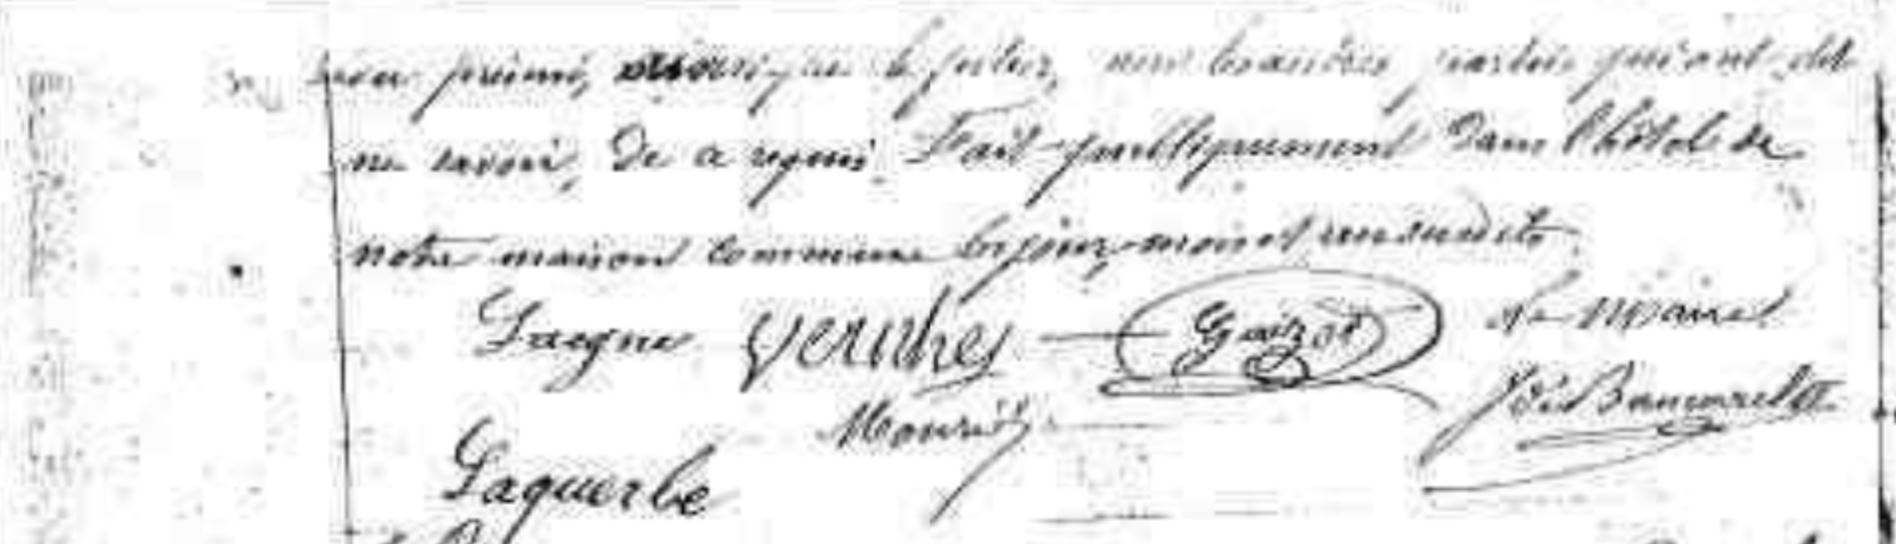 ainsi que le futur, non les autres parties qui ont dit
ne savoir, de ce requis. Fait publiquement dans l'hôtel de
notre maison commune les jour, mois et an susdits
Laegne Vernhes Guizot Le Maire
Mouriés
Laquerbe